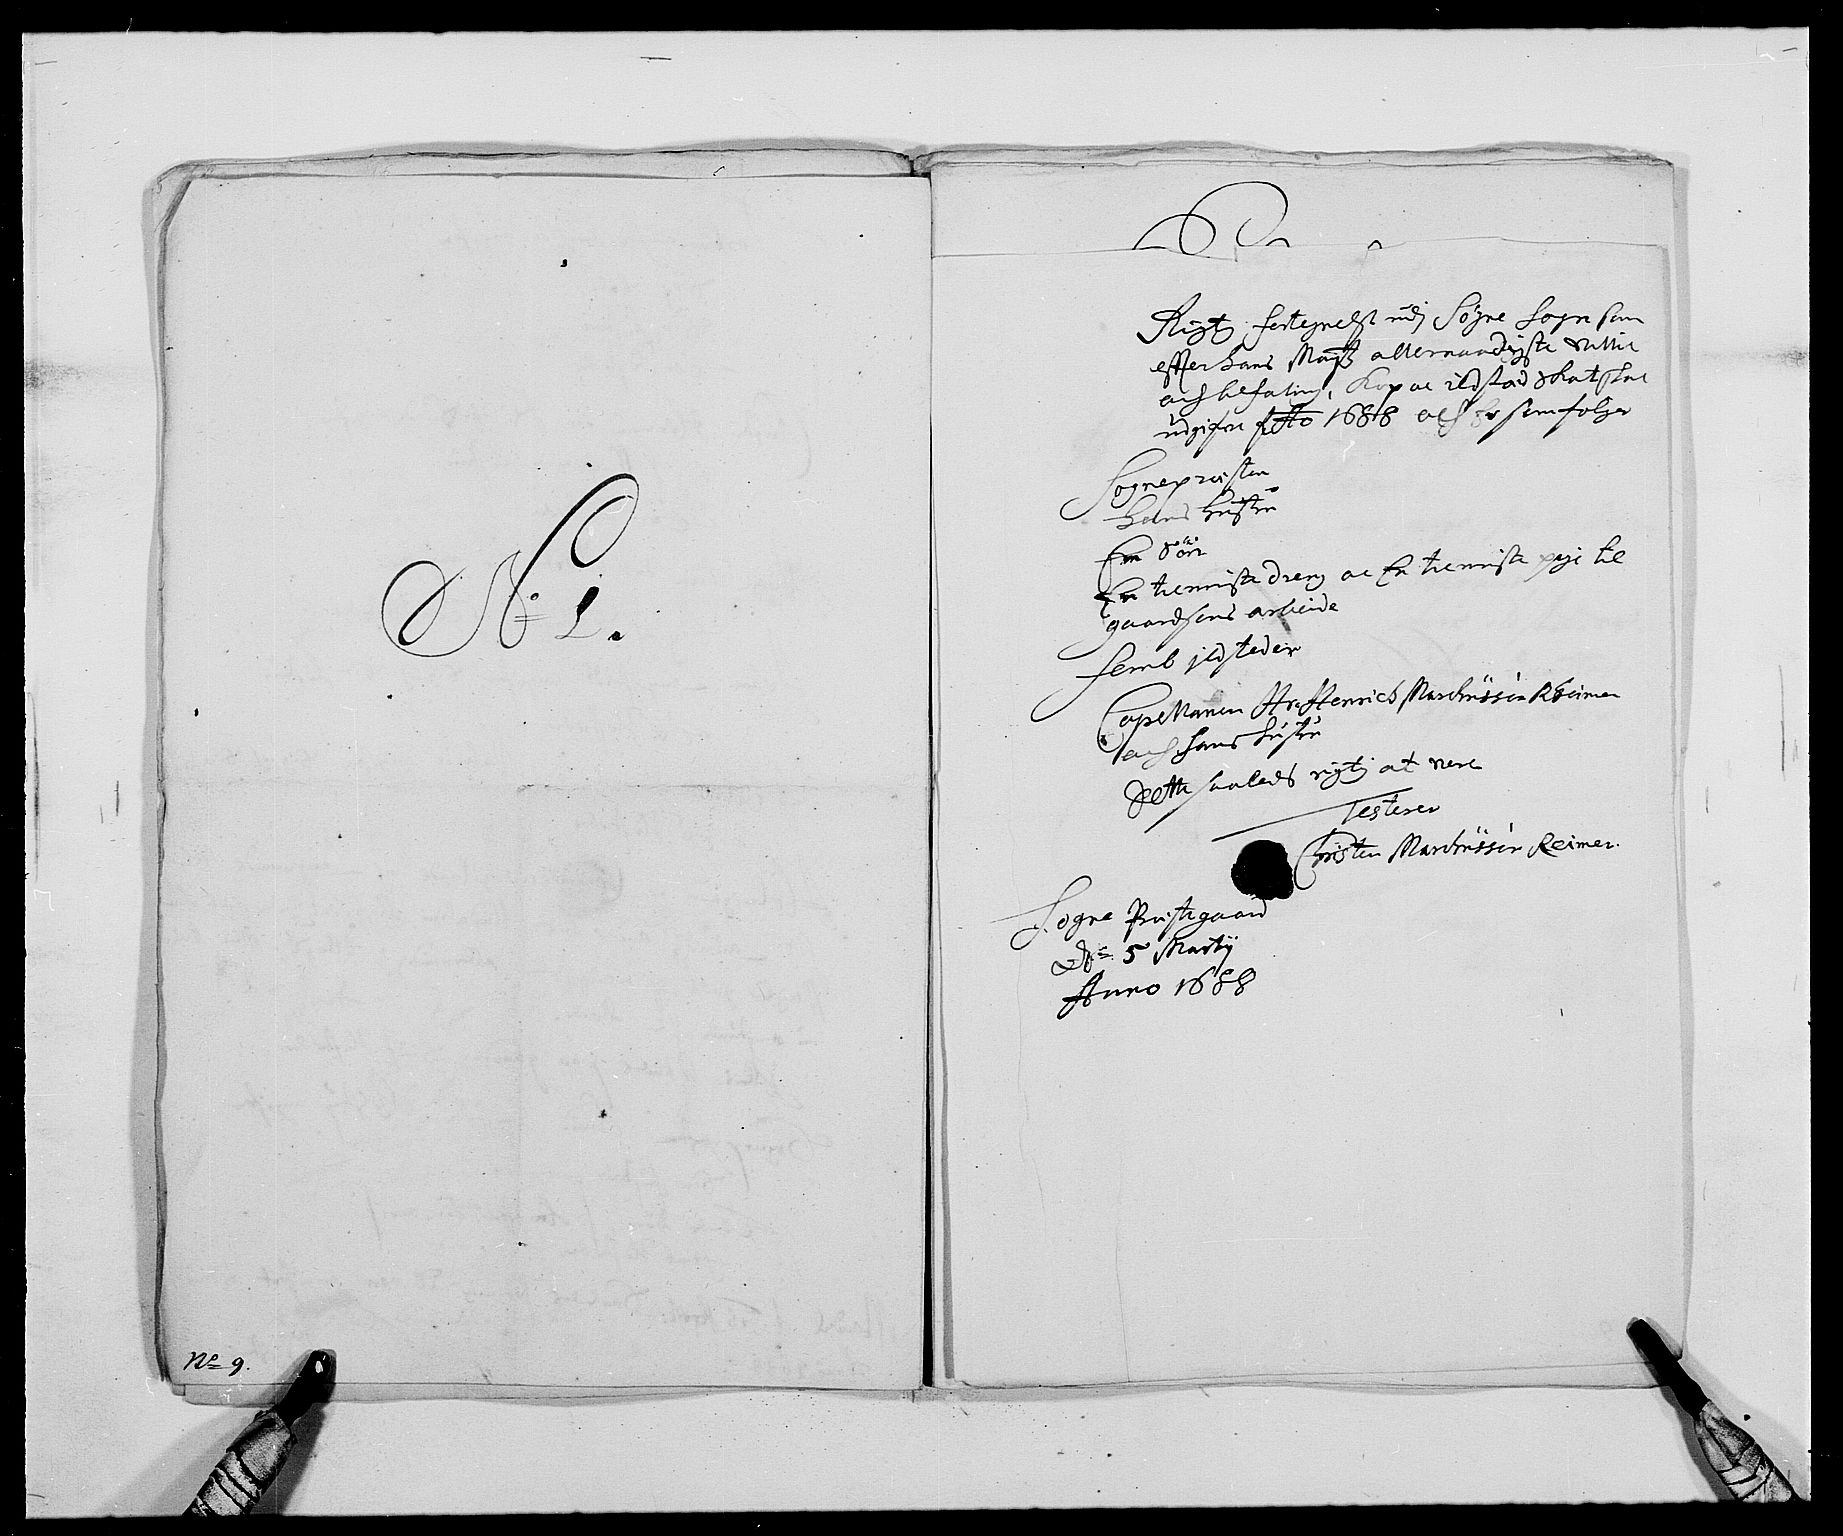 No 1.
No 9.
Rigtj fortegnelse udj Søgne Sogn som
effter hans Mayts allernaadigste villie
och befaling, Kop oc ildstad skat skal
udgifve pro Ao 1688 och er som følger
Sognepresten
hans hustru
En Sön
En tienniste dreng oc En tienniste pige til
gaardsens arbeide
Femb jldsteder
Capellanen Hr. Henrich Marchussön Reimer
och hans hustru
Dette saaleds rigtj at vere
Testerer
Christen Marchussön Reimer.
Søgne Prestegaard
Dn 5 Martij
Anno 1688